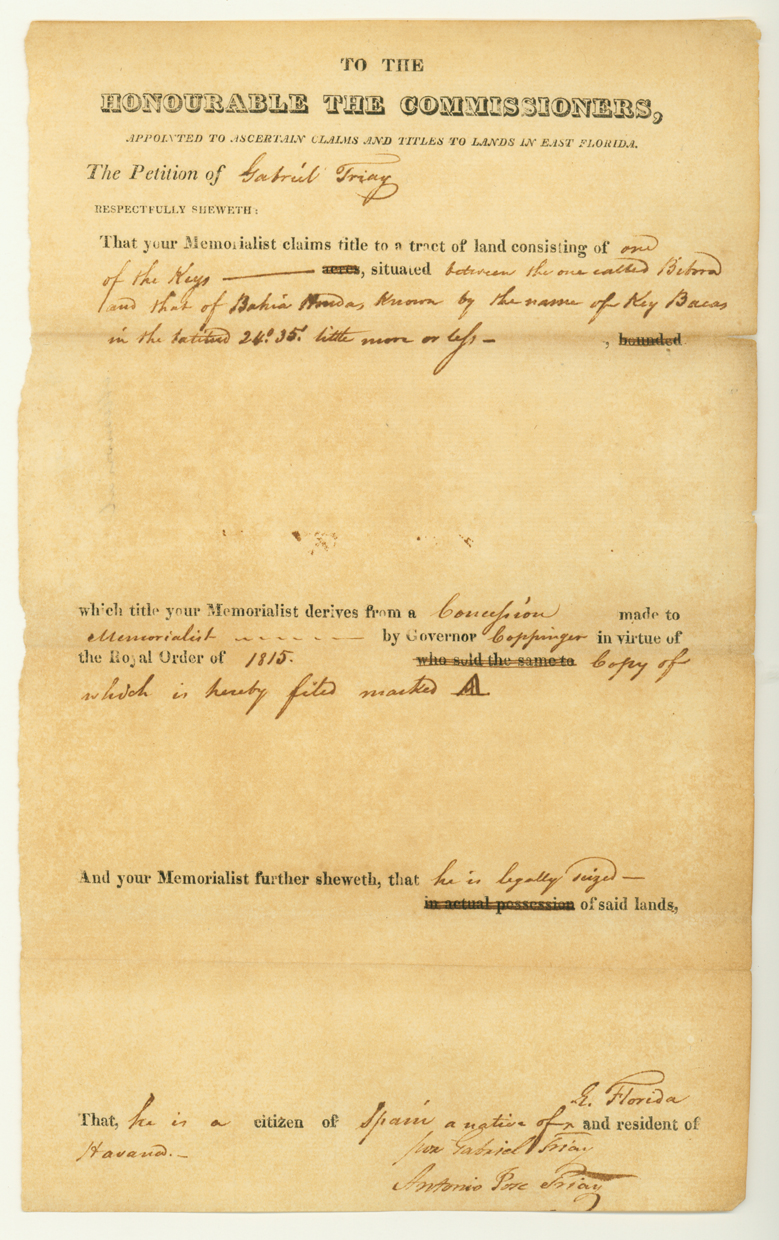 TO THE
HONOURABLE THE COMMISSIONERS,
APPOINTED TO ASCERTAIN CLAIMS AND TITLES TO LANDS IN EAST FLORIDA.
The Petition of Gabriel Triay
RESPECTFULLY SHEWETH:
That your Memorialist claims title to a tract of land consisting of one
of the Keys — acres, situated between the one called Bibora
and that of Bahia Hondas Known by the name of Key Bacas
in the latitud 24.° 35.' little more or less — , bounded
which title your Memorialist derives from a Concession made to
Memorialist - - - - - by Governor Coppinger in virtue of
the Royal Order of 1815. who sold the same to Copy of
which is hereby filed marked A
And your Memorialist further sheweth, that he is legally seized —
in actual possession of said lands,
E. Florida
That, he is a citizen of Spain a native of x and resident of
Havana. — por Gabriel Triay
Antonio Jose Triay